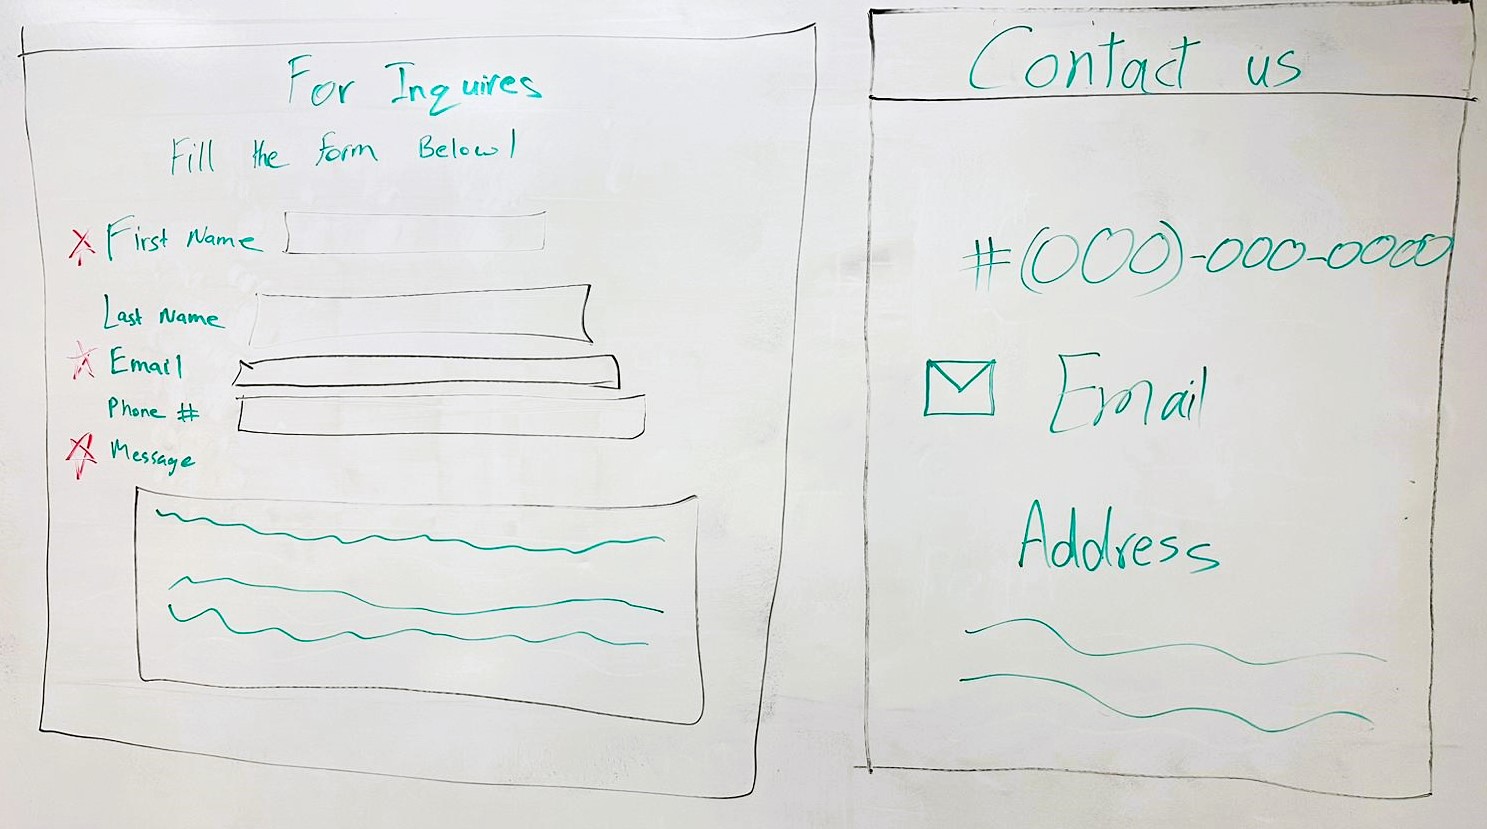 For Inquires
Fill the form Below!
* First Name
Last Name
* Email
Phone #
* Message
Contact us
#(000)-000-0000
Email
Address